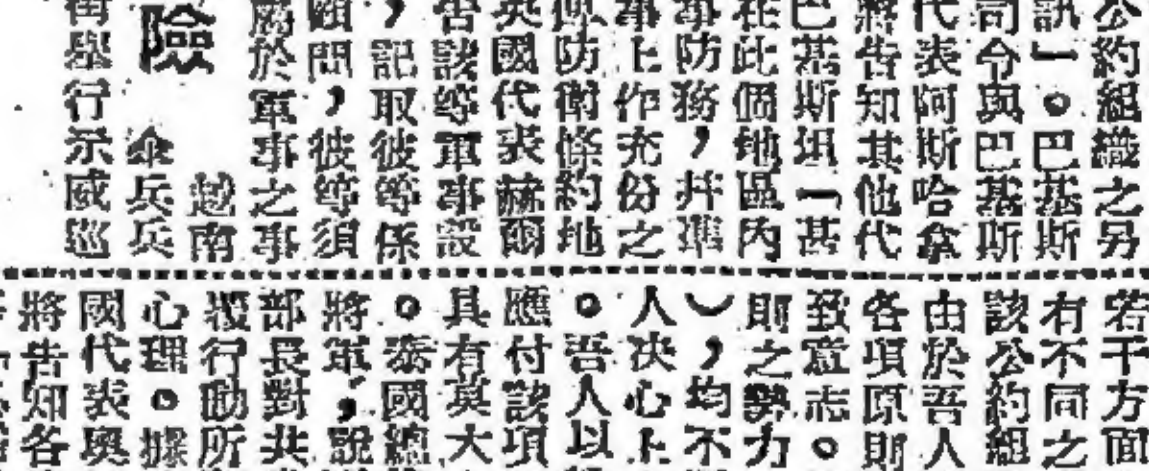 公約組織之另
訊」。巴基斯
司令與巴基斯
代表阿斯哈拿
將告知其他代
巴基斯坦一甚
在此個地區內
事防務，并準
事上作充份之
防衛條約地
英國代表赫爾
否該等軍事設
，記取彼等係
顧問，彼等須
屬於軍事之事
越南
險
傘兵兵
舉行示威巡
若干方面
有不同之
該公約組
由於吾人
各項原則
致意志。
則之勢力
），均不
人决心上
。吾人以
應付該項
具有莫大
。泰國總
將軍，說
部長對共
覆行動所
心理。據
國代表奧
將告知各